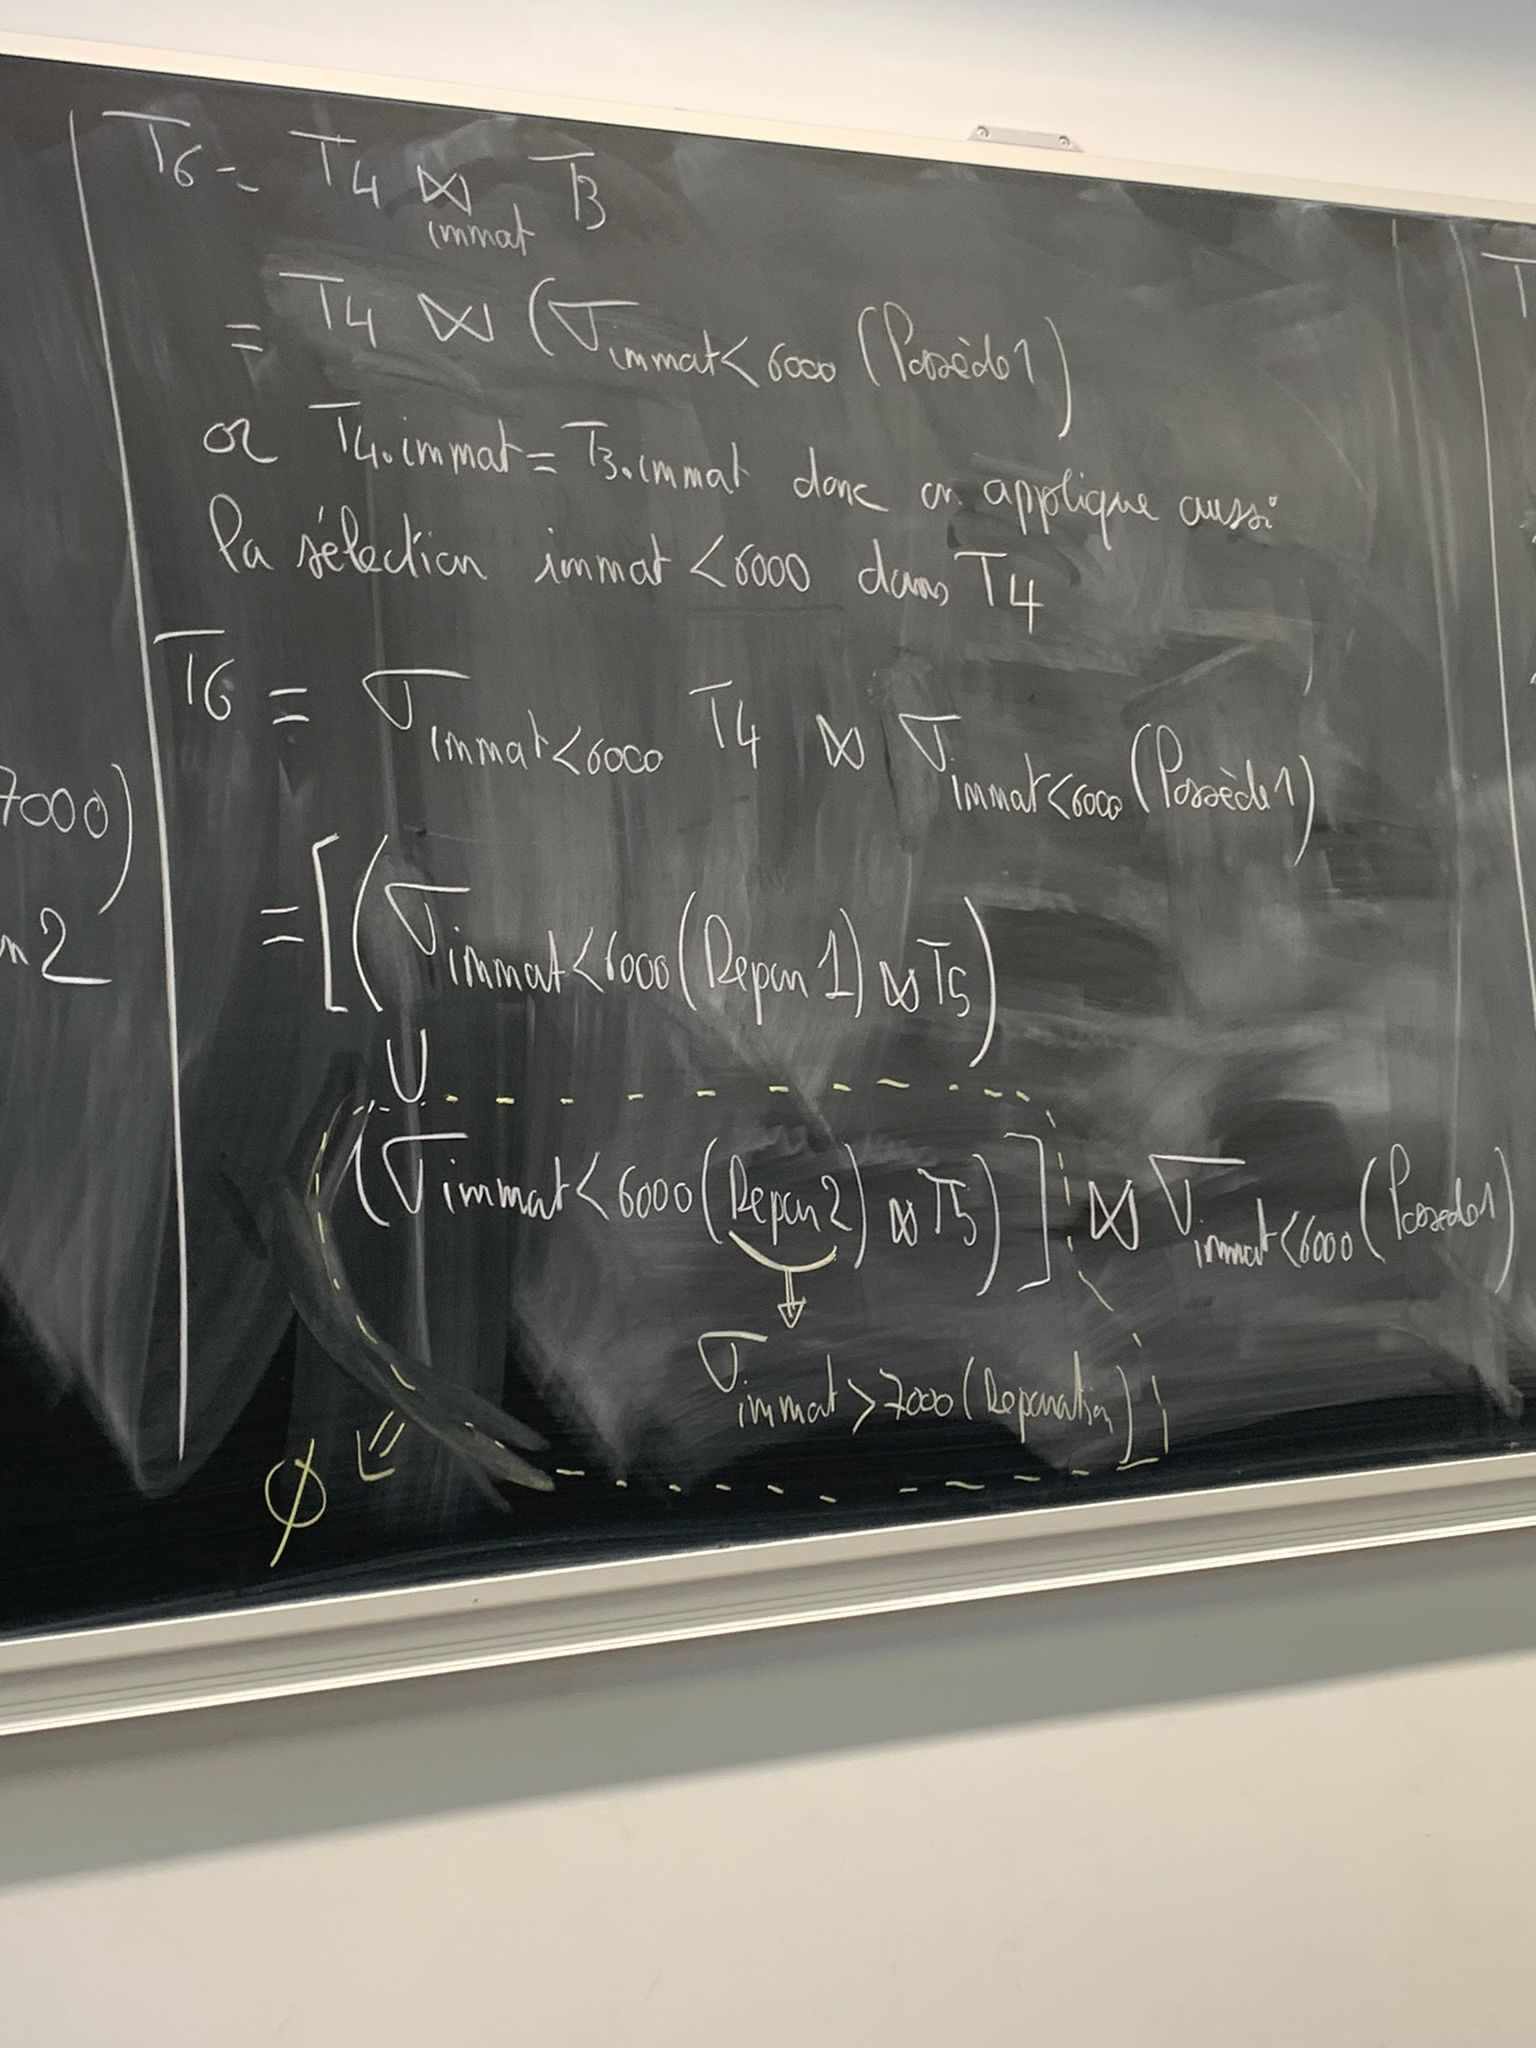 T6 = T4 ⋈ T3
immat
= T4 ⋈ (σ immat<6000 (Possède1)
or T4.immat = T3.immat donc on applique aussi
la sélection immat <6000 dans T4
T6 = σ immat<6000 T4 ⋈ σ immat<6000 (Possède1)
7000)
= [(σ immat<6000 (Repar1) ⋈ T5)
n2
∪
(σ immat<6000 (Repar2) ⋈ T5)] ⋈ σ immat<6000 (Possede1)
⇓
σ immat >7000 (Reparation)
∅ ⇙
T